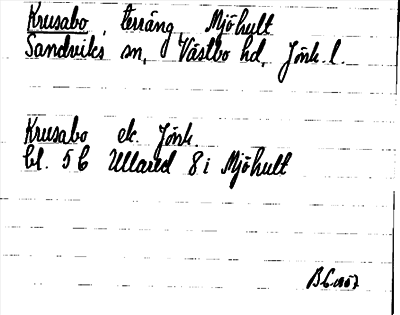 Krusabo, terräng, Mjöhult
Sandviks sn, Västbo hd, Jönk. l.
Krusabo ek. Jönk.
bl. 5C Ullared 8 i Mjöhult